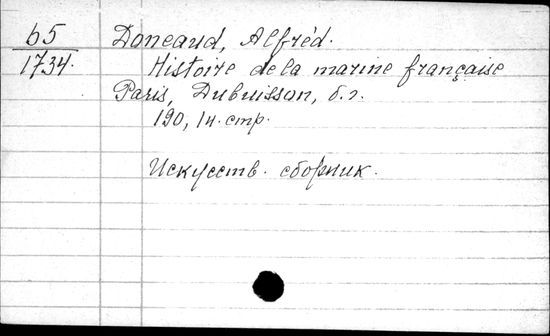 65 Doneaud, Alfréd.
1734. Histoire de la marine française
Paris, Dubuisson, б.г.
190, 1н. стр.
Искусств. сборник.